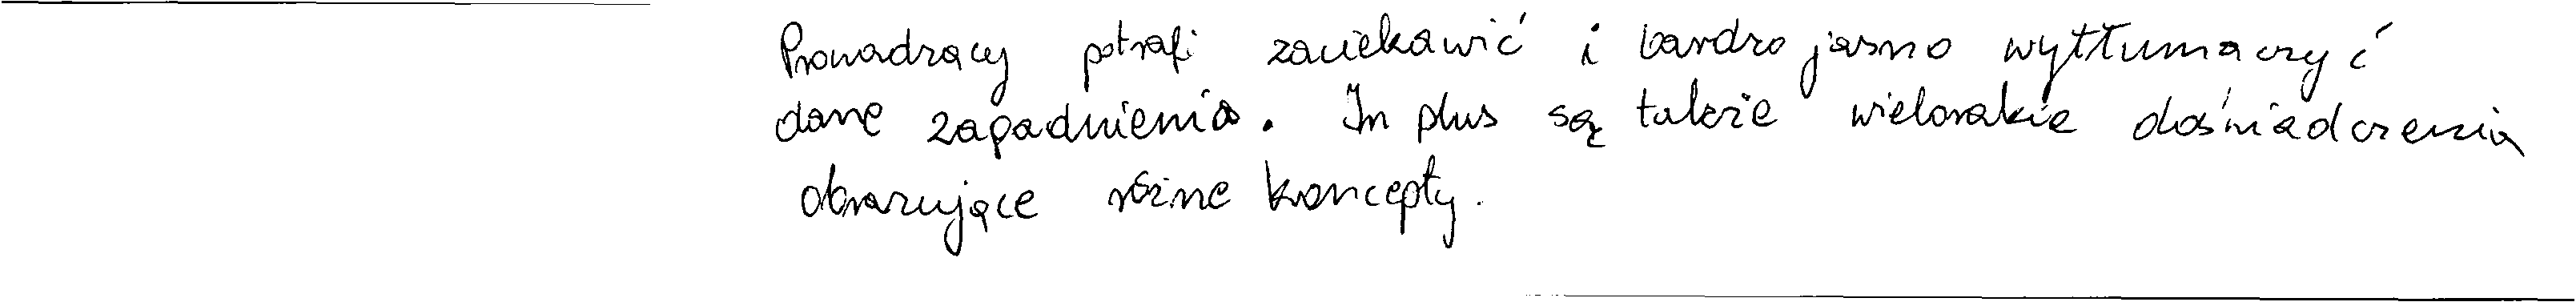 Prowadzący potrafi zaciekawić i bardzo jasno wytłumaczyć
dane zagadnienia. In plus są także wielorakie doświadczenia
obrazujące różne koncepty.